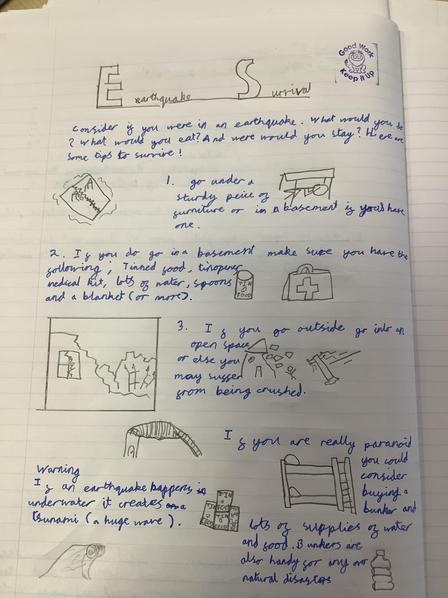 Good Work
Keep it up
Earthquake Survival
Consider if you were in an earthquake. What would you do
? What would you eat? And were would you stay? Here are
some tips to survive!
1. go under a
sturdy peice of
furniture or in a basement if you have
one.
2. If you do go in a basement make sure you have the
following; Tinned food, tinopener
medical kit, lots of water, spoons
and a blanket (or more).
TIN
FOOD
3. If you go outside go into an
open space
or else you
may suffer
from being crushed.
If you are really paranoid
you could
consider
buying a
bunker and
lots of supplies of water
and food. Bunkers are
also handy for any
natural disasters
Warning
If an earthquake happens in
underwater it creates a
tsunami (a huge wave).